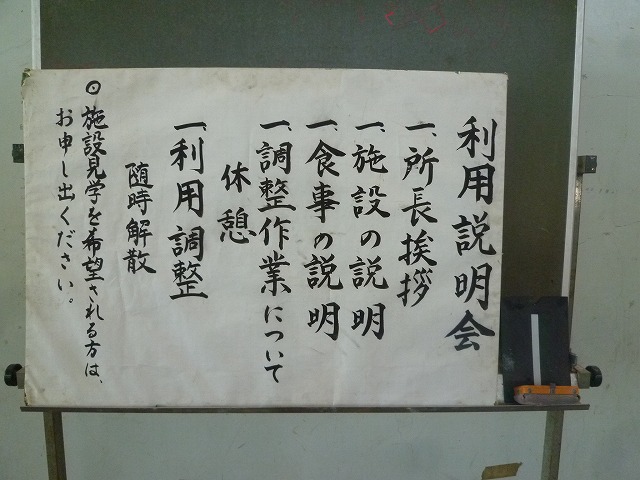 利用説明会
一、所長挨拶
一、施設の説明
一、食事の説明
一、調整作業について
休憩
一、利用調整
随時解散
◎施設見学を希望される方は、
お申し出ください。